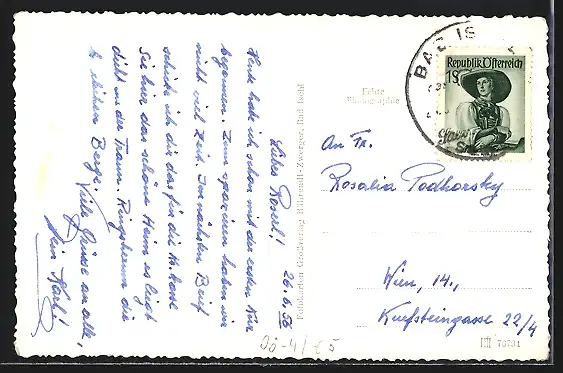 Liebes Roserl! 26.6.56
Heute habe ich schon mit der ersten Kur
begonnen. Zum spazieren haben wir
nicht viel Zeit. Im nächsten Brief
schicke ich dir das für die Kr. Kasse
Sie hier das schöne Heim es liegt
dicht an der Traun. Ringsherum die
schönen Berge.
Viele Grüsse an alle,
dein Karl!
Echte
Photographie
Fotokarten Großverlag Birkmaudt-Zwerger, Bad Ischl
BAD IS
Republik Österreich
1S
An Fr.
Rosalia Podhorsky
Wien, 14.,
Kuefsteingasse 22/4
76794